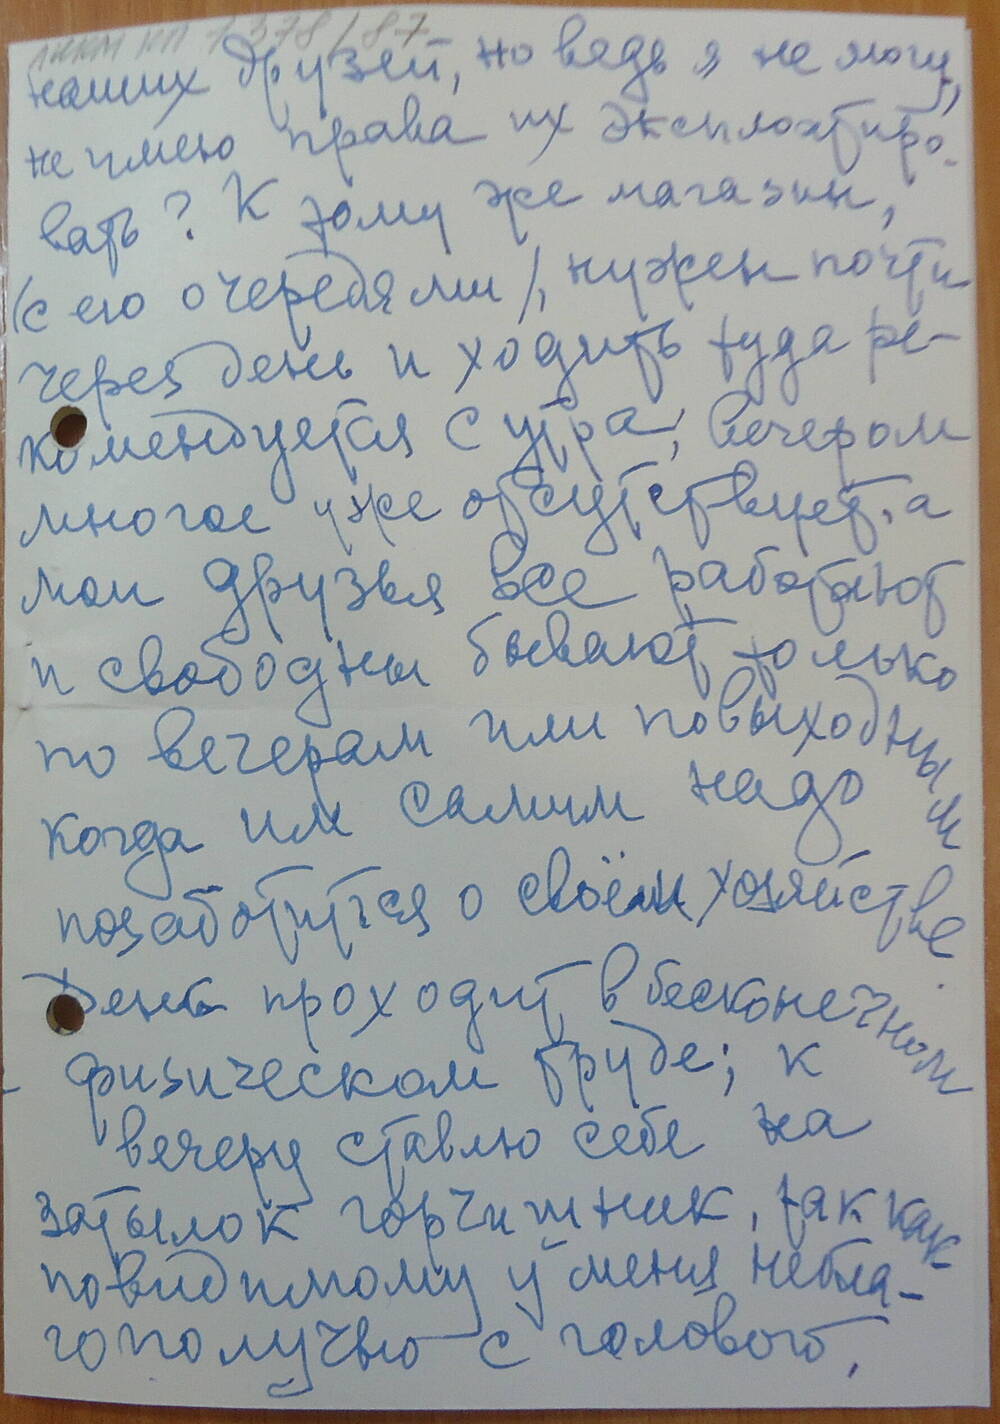 ЛККМ КП 1378/87
наших друзей, но ведь я не могу,
не имею права их эксплоатиро-
вать? К тому же магазин,
(с его очередями), нужен почти
через день и ходить туда ре-
комендуется с утра, вечером
многое уже отсутствует, а
мои друзья все работают
и свободны бывают только
по вечерам или по выходным
когда им самим надо
позаботится о своём хозяйстве.
День проходит в бесконечном
физическом труде; к
вечеру ставлю себе на
затылок горчишник, так как
повидимому у меня небла-
гополучно с головой,